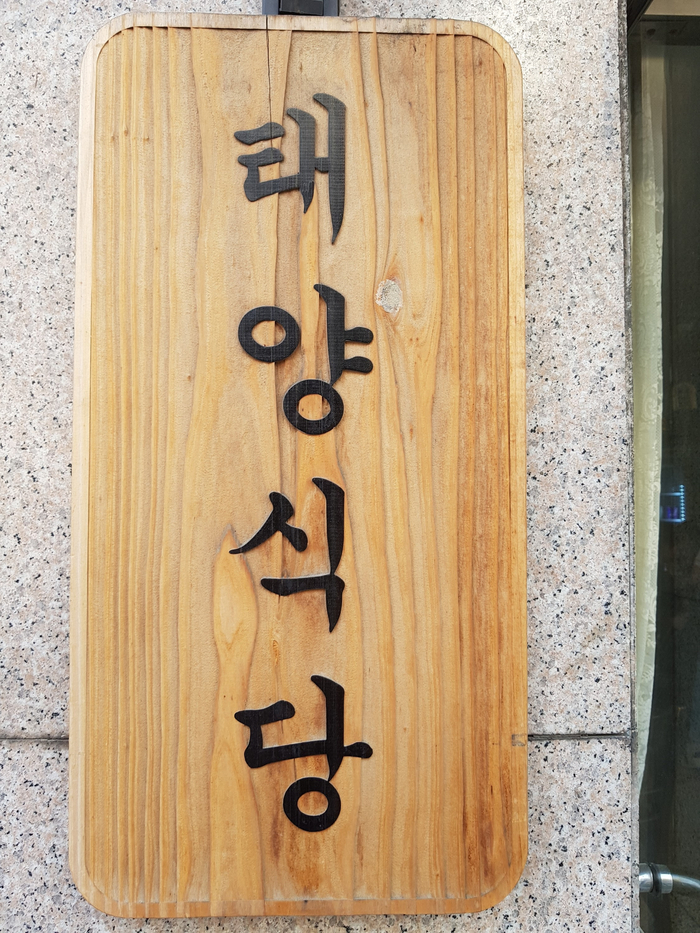 태양식당